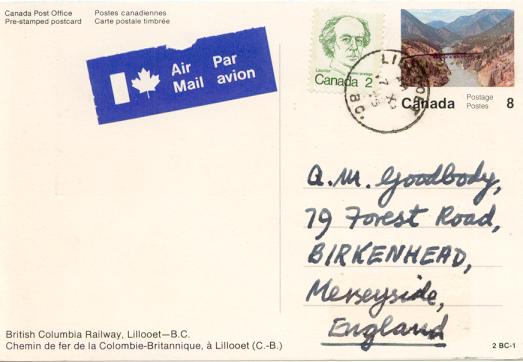 Canada Post Office Postes canadiennes
Pre-stamped postcard Carte postale timbrée
Air Par
Mail avion
Canada 2
LILLOOET
17 X
B.C.
Canada Postage 8
Postes
Q.M. Goodbody,
79 Forest Road,
BIRKENHEAD,
Merseyside,
England
British Columbia Railway, Lillooet—B.C.
Chemin de fer de la Colombie-Britannique, à Lillooet (C.-B.)
2 BC-1